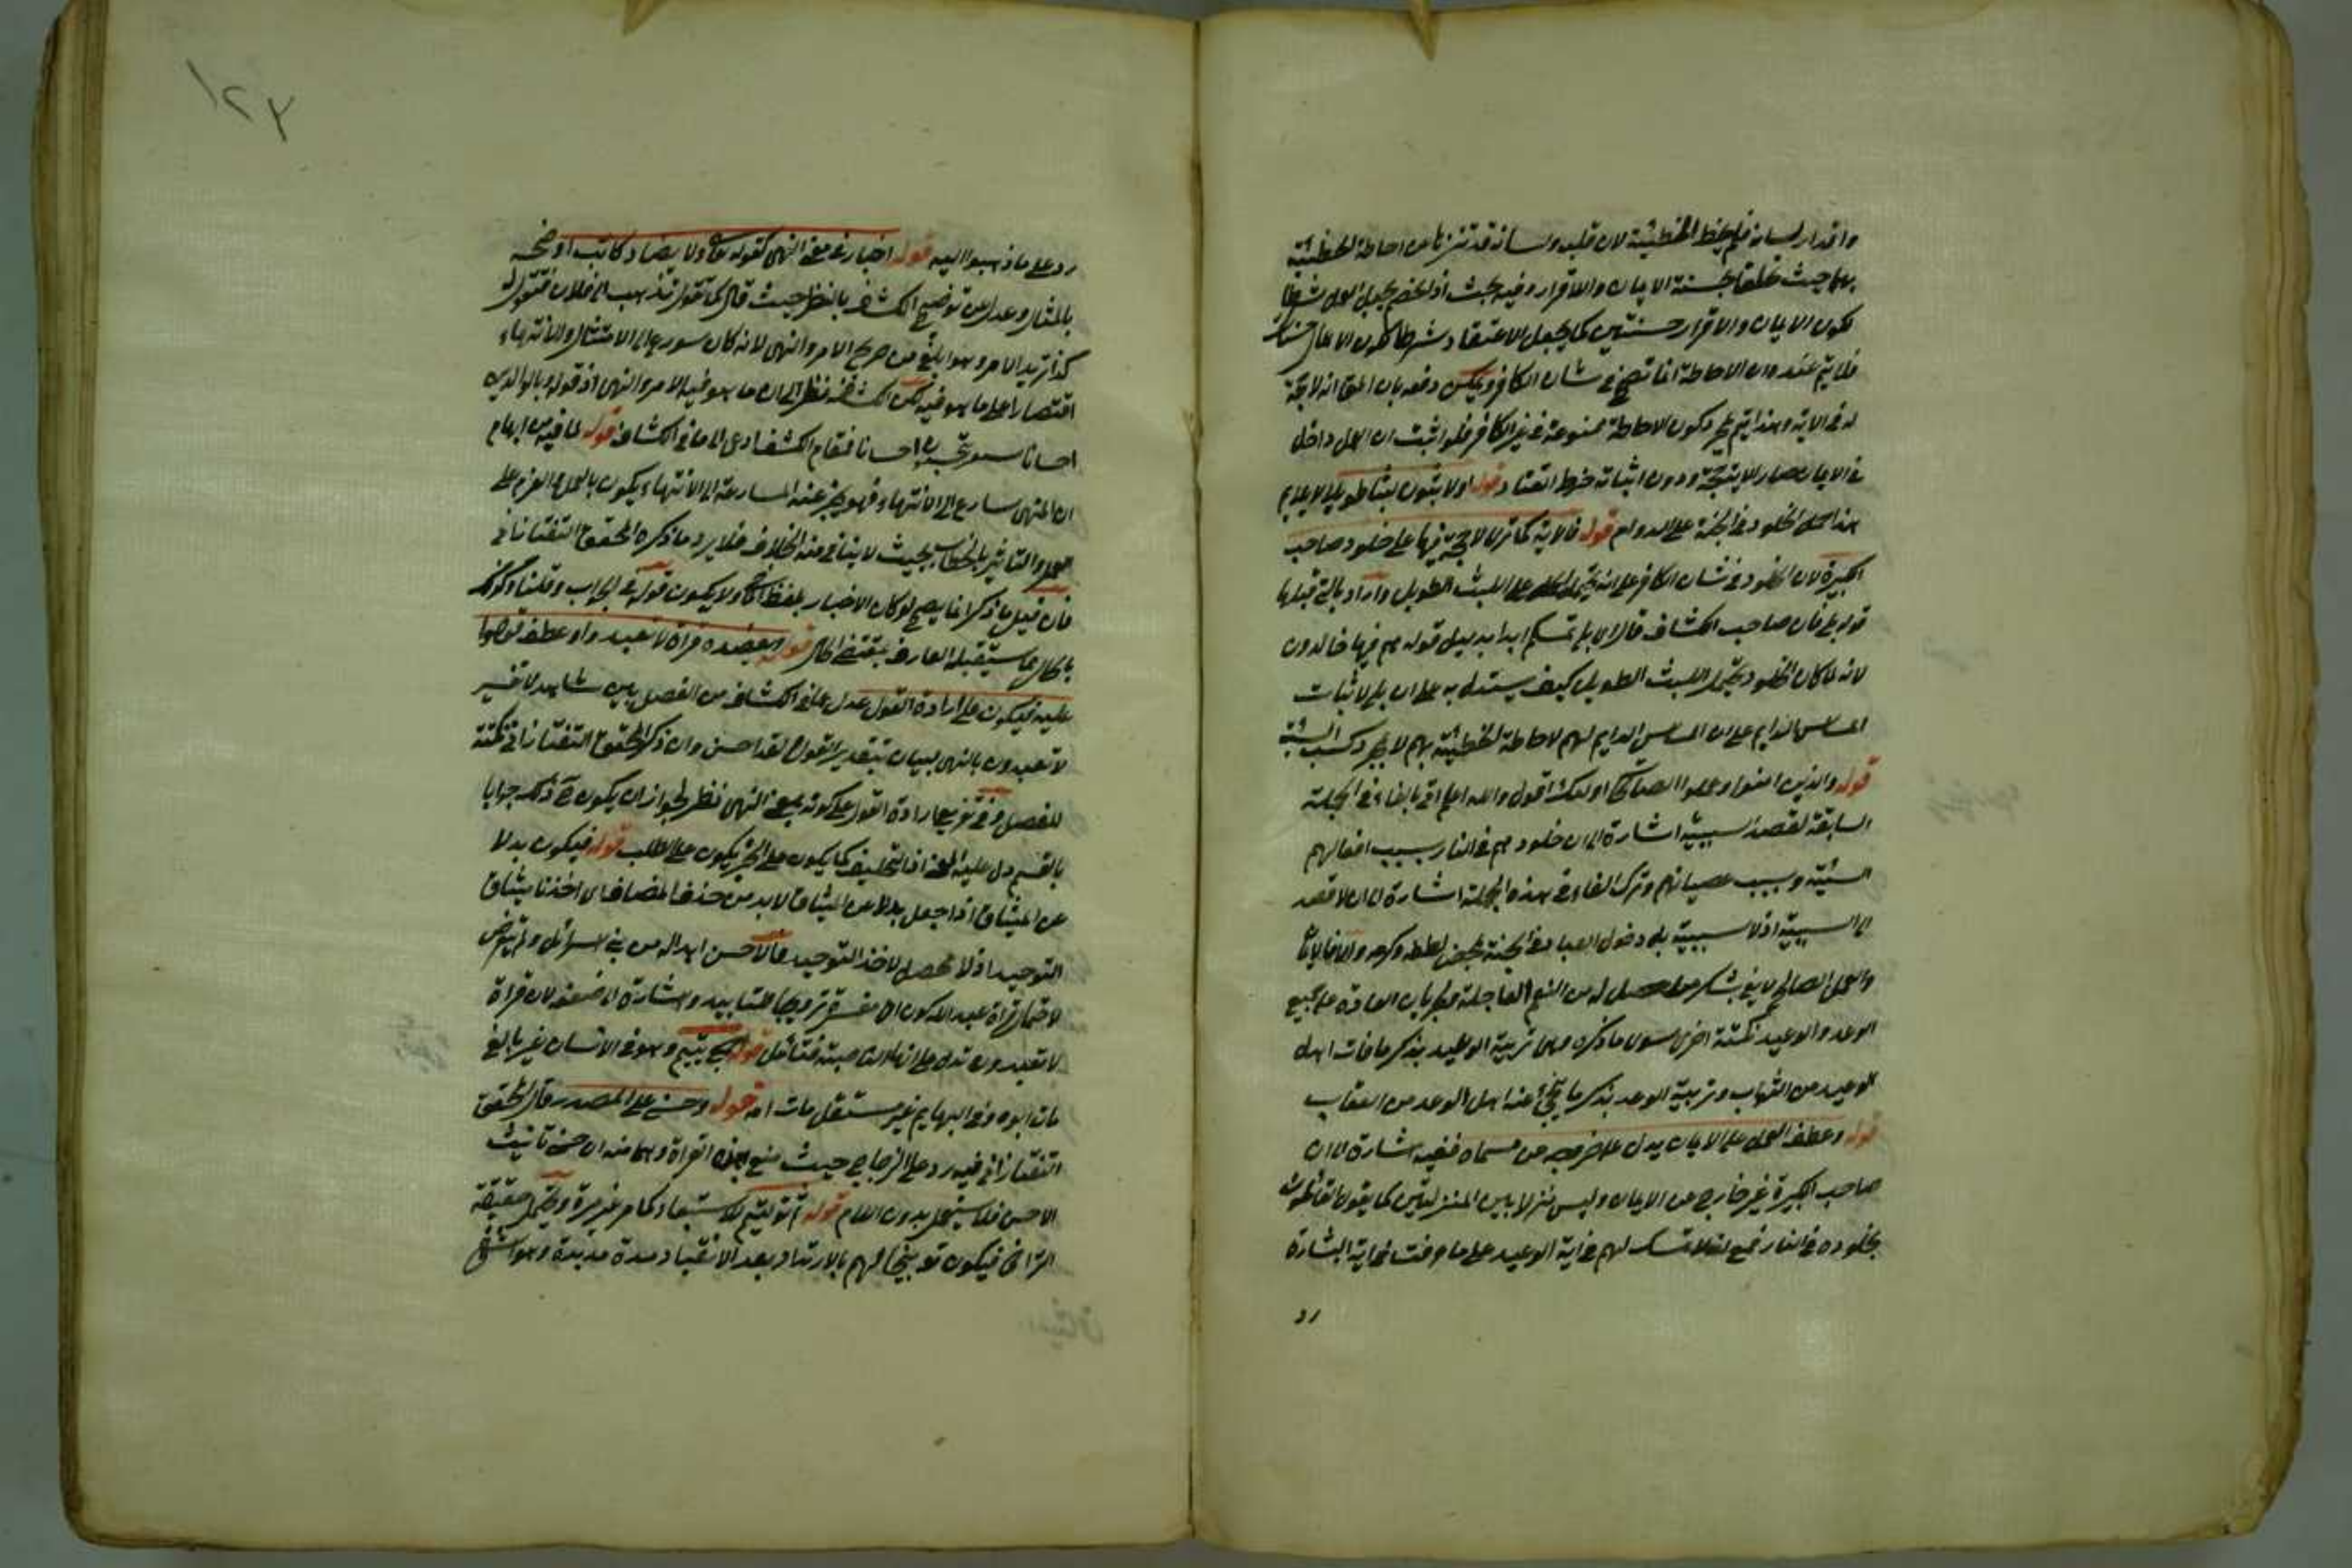 واقرار لسانه فلم يحط الخطيئة لان قلبه ولسانه قد تنزها من احاطة الخطيئة
بهما حيث تعلقا بحسنة الايمان والاقرار وفيه بحث اذ الخصم يجعل العمل شرطا
لكون الايمان والاقرار حسنتين كما يجعل الاعتقاد شرطا لكون الاعمال حسنات
فلا يتم عنده ان الاحاطة انما تصح في شان الكافر ويمكن دفعه بان المق انه لا حجة
له في الاية وهذا يتم بمجرد كون الاحاطة ممنوعة في غير الكافر فلو اثبت ان العمل داخل
في الايمان صار لا يتجه ودون اثباته خرط القتاد قوله او لابثون لبثا طويلا
هذا الخلود في الجنة على الدوام قوله فالاية كما ترى لا حجة فيها على خلود صاحب
الكبيرة لان الخلود في شان الكافر على انه يحتمل على اللبث الطويل واراد بالتي قبلها
قوله بلى فان صاحب الكشاف قال اي بلى تمسكم ابدا بدليل قوله هم فيها خالدون
لانه لما كان الخلود يحتمل اللبث الطويل كيف يستدل به على ان بلى لاثبات
المساس الدايم على ان المساس الدايم لهم لاحاطة الخطيئة بهم لا بمجرد كسب السيئة
قوله والذين امنوا وعملوا الصالحات اولئك اقول والله اعلم اتى بالفاء في الجملة
السابقة لقصد السببية اشارة الى ان خلودهم في النار بسبب افعالهم
السيئة وبسبب عصيانهم وترك الفاء في هذه الجملة اشارة الى ان لا قصد
الى السببية اذ لا سببية بل دخول العباد في الجنة بمحض لطفه وكرمه والا فالايمان
والعمل الصالح لا يفي بشكر ما حصل له من النعم العاجلة جريان العادة على جمع
الوعد والوعيد نكتة اخرى سوى ما ذكره وهي تربية الوعيد بذكر ما فات اهل
الوعيد من الثواب وتربية الوعد بذكر ما نجي عنه اهل الوعد من العقاب
قوله وعطف العمل على الايمان يدل على خروجه من مسماه ففيه اشارة الى ان
صاحب الكبيرة غير خارج من الايمان وليس منزلا بين المنزلتين كما يقول القائلون
بخلوده في النار فمع انه لا تمسك لهم في اية الوعيد على ما عرفت في اية البشارة
رد
١٢٣
رد على ما ذهبوا اليه قوله اخبار في معنى النهي كقوله تعالى ولا يضار كاتب اوضحه
بالمثال وعدل عن توضيح الكشاف بالنظر حيث قال كما تقول تذهب الى فلان فتقول له
كذا تريد الامر وهو ابلغ من صريح الامر والنهي لانه كان سورع الى الامتثال والانتهاء
اقتصارا على ما هو فيه لكن الكشاف نظر الى ان ما هو فيه الامر والنهي اذ قوله وبالوالدين
احسانا احسانا فمقام الكشف ادعى الى ما في الكشاف قوله لما فيه من ايهام
ان المنهي سارع الى الانتهاء فهو يخبر عنه المسارعة الى الانتهاء يكون بالعزم على
بحيث لا يتاتى منه الخلاف فلا يرد ما ذكره المحقق التفتازاني
فان قيل ما ذكر انما يصح لو كان الاخبار بلفظ ولا يكون قوله
بمقتضى الحال قوله ويعضده قراءة لا تعبدوا وعطف قولوا
عليه فيكون على ارادة القول عدل عما في الكشاف من الفصل بين شاهد لا تفسير
لا تعبدون بالنهي ببيان تقدير القول لقد احسن وان ذكر المحقق التفتازاني نكتة
للفصل وفي تفريع ارادة القول على كونه بمعنى النهي نظر لجواز ان يكون ذلك جوابا
بالقسم دل عليه المعنى اذ التحليف كما يكون على الخبر يكون على الطلب قوله فيكون بدلا
من الميثاق اذا جعل بدلا من الميثاق لا بد من حذف المضاف اي اخذنا ميثاق
التوحيد اذ لا محصل لاخذ التوحيد فالاحسن ابداله من بني اسرائيل ولم يتعرض
لاحتمال قراءة عبد الله كون ان مفسرة ترويجا للتاييد واشارة الى ضعفه لان قراءة
لا تعبدون تدل على انها الناصبة فتامل قوله جمع يتيم وهو في الانسان غير بالغ
مات ابوه وفي البهايم غير مستقل مات امه قوله وحسنى على المصدر قال المحقق
التفتازاني فيه رد على الزجاج حيث منع هذه القراءة وهما منه ان حسنى تانيث
الاحسن فلا يستعمل بدون اللام قوله ثم توليتم للاستبعاد كما مر غير مرة ويحتمل حقيقة
التراخي فيكون توبيخا لهم بالارتداد بعد الانقياد مدة مديدة وهو اشنع